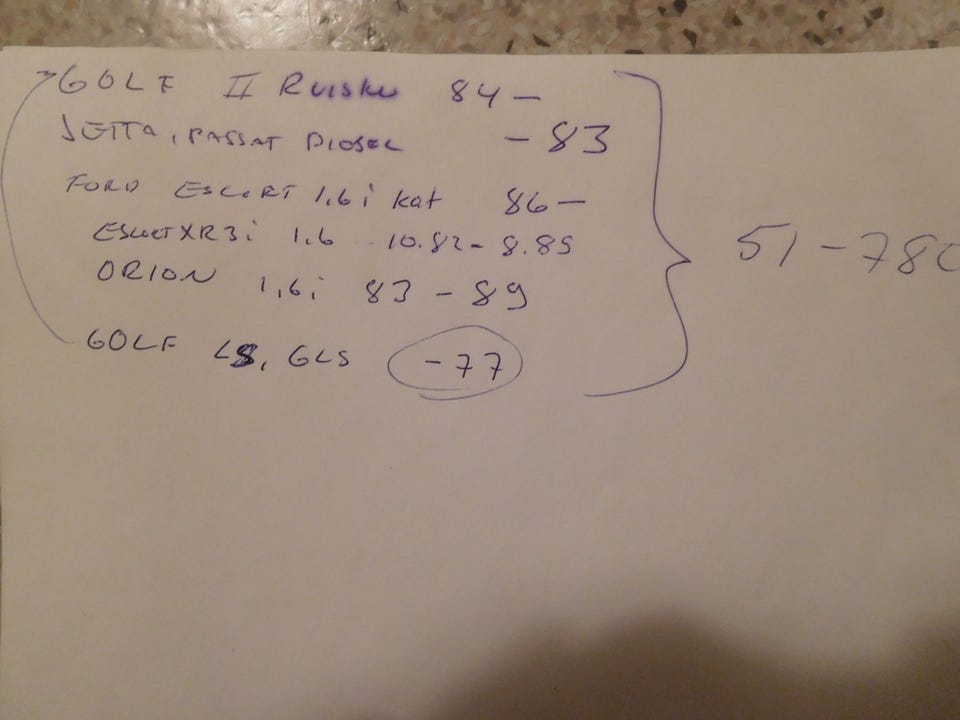 GOLF II Ruisku 84 -
JETTA, PASSAT DIESEL - 83
FORD ESCORT 1,6 i kat 86 -
ESCORT XR3i 1.6 10.82 - 8.89
ORION 1,6i 83 - 89
GOLF LS, GLS - 77
51 - 780